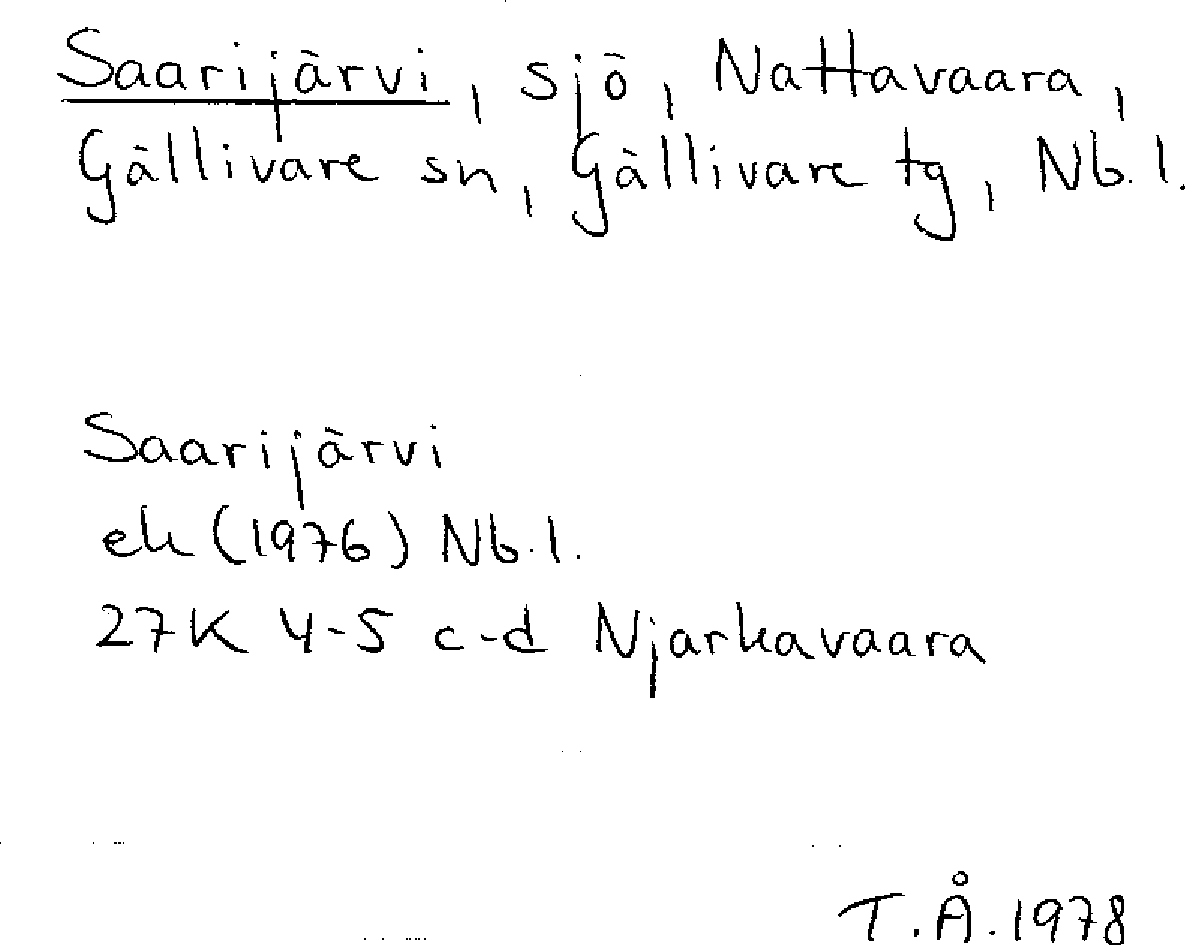 Saarijärvi, sjö, Nattavaara,
Gällivare sn, Gällivare tg, Nb.l.
Saarijärvi
ek (1976) Nb.l.
27K 4-5 c-d Njarkavaara
T.Å.1978